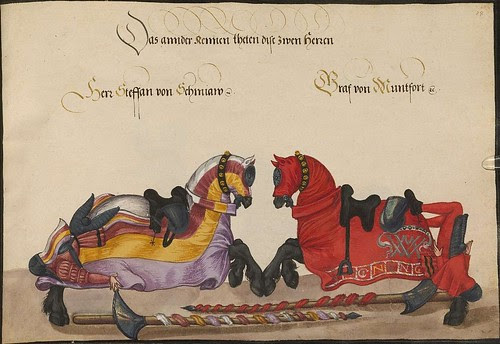 Das annder Rennen theten dise zwen Herren
Herr Steffan von Schmiaw
Graf von Muntfort